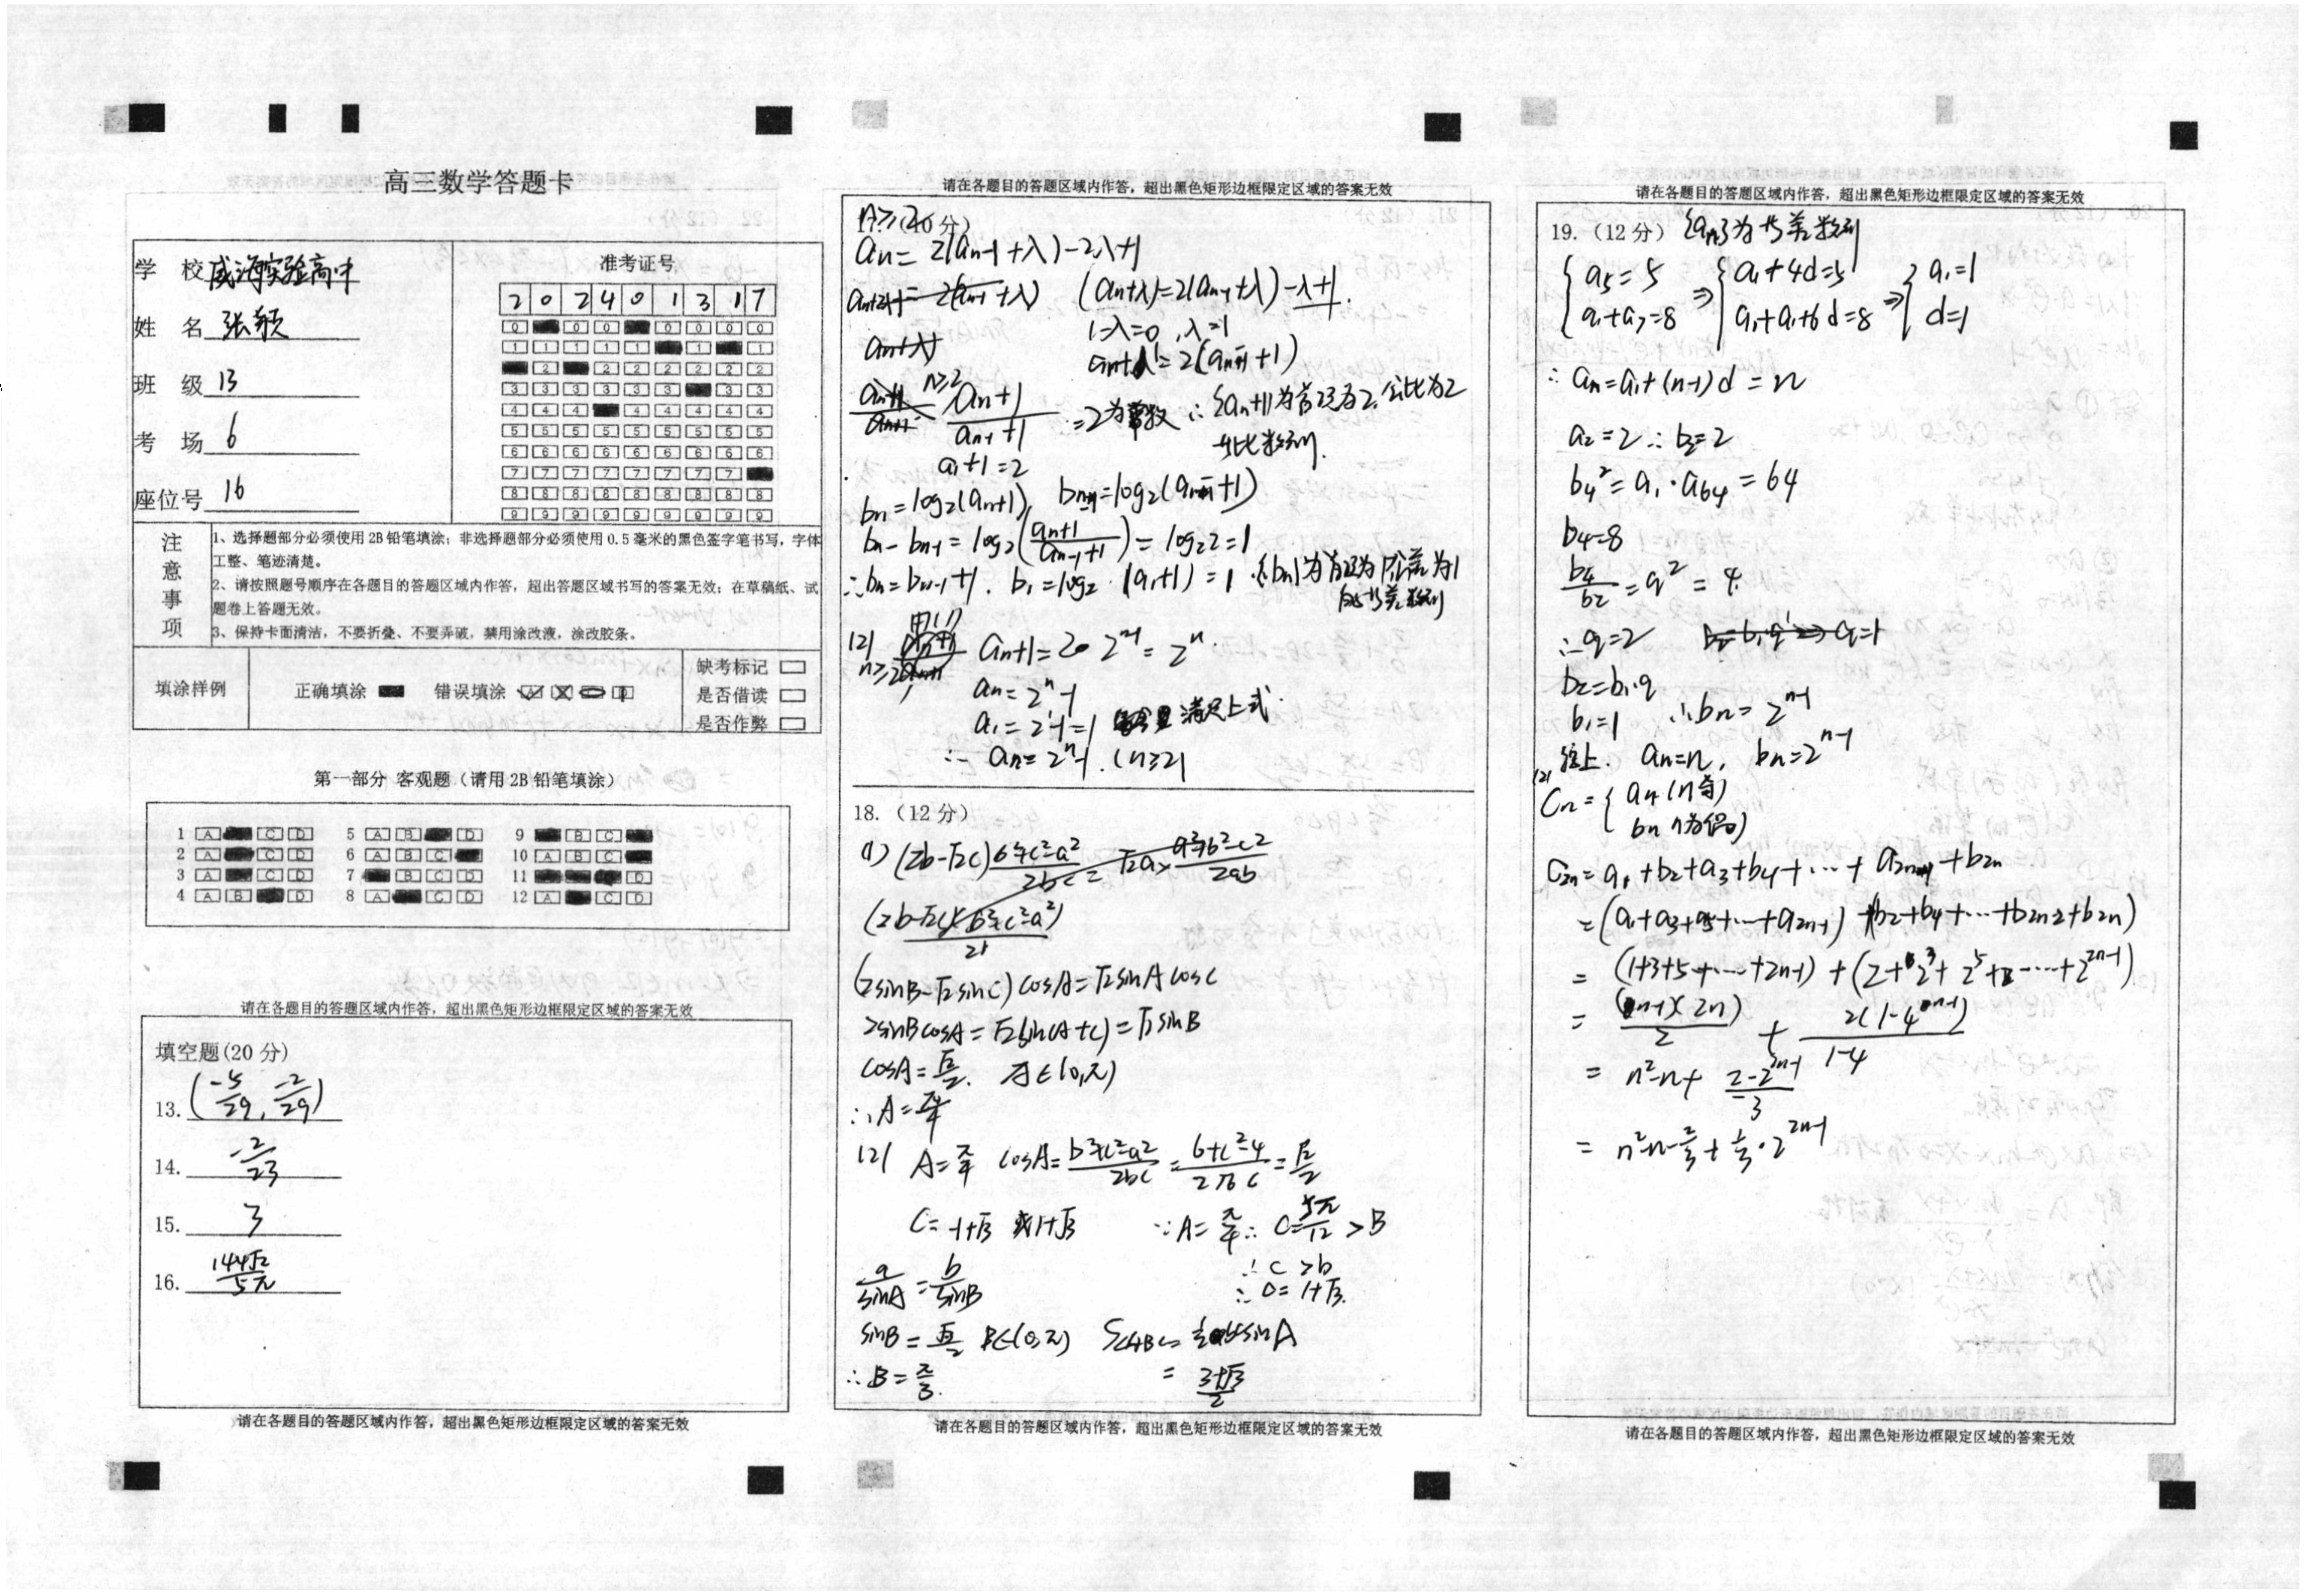 高三数学答题卡
学 校 威海实验高中
姓 名 张颖
班 级 13
考 场 6
座位号 16
准考证号
2 0 2 4 0 1 3 1 7
注意事项
1、选择题部分必须使用2B铅笔填涂；非选择题部分必须使用0.5毫米的黑色签字笔书写，字体
工整、笔迹清楚。
2、请按照题号顺序在各题目的答题区域内作答，超出答题区域书写的答案无效；在草稿纸、试
题卷上答题无效。
3、保持卡面清洁，不要折叠、不要弄破，禁用涂改液，涂改胶条。
填涂样例
正确填涂
错误填涂
缺考标记
是否借读
是否作弊
第一部分 客观题（请用2B铅笔填涂）
1 A C D 5 A B D 9 B C
2 A C D 6 A B C 10 A B C
3 A C D 7 B C D 11 D
4 A B D 8 A C D 12 A C D
请在各题目的答题区域内作答，超出黑色矩形边框限定区域的答案无效
填空题(20 分)
13. (-5/29, -2/29)
14. -2/23
15. 3
16. 144√2/5π
请在各题目的答题区域内作答，超出黑色矩形边框限定区域的答案无效
请在各题目的答题区域内作答，超出黑色矩形边框限定区域的答案无效
an=2(an-1+λ)-2λ+1
(an+λ)=2(an-1+λ)-λ+1.
1-λ=0,λ=1
an+1=2(an-1+1)
n≥2
(an+1)/(an-1+1)=2为常数 ∴{an+1}为首项为2,公比为2
等比数列.
a1+1=2
bn=log2(an+1), bn-1=log2(an-1+1)
bn-bn-1=log2((an+1)/(an-1+1))=log22=1
∴bn=bn-1+1. b1=log2(a1+1)=1 ∴{bn}为首项为1,公差为1
的等差数列
(2) 由(1)
n≥2 an+1=2·2^(n-1)=2^n.
an=2^n-1
a1=2^1-1=1 满足上式.
∴ an=2^n-1.(n≥2)
18.（12 分）
(1) (2b-√2c)(b²+c²-a²)/2bc=√2a×(a²+b²-c²)/2ab
(2sinB-√2sinC)cosA=√2sinAcosC
2sinBcosA=√2sin(A+C)=√2sinB
cosA=√2/2. A∈(0,π)
∴A=π/4
(2) A=π/4 cosA=(b²+c²-a²)/2bc=(6+c²-4)/2√6c=√2/2
C=-1+√3 或1+√3 ∵A=π/4∴C=5π/12>B
a/sinA=b/sinB ∴c>b
∴c=1+√3.
sinB=√3/2 B∈(0,π) S△ABC=½bcsinA
∴B=π/3. =(3+√3)/2
请在各题目的答题区域内作答，超出黑色矩形边框限定区域的答案无效
请在各题目的答题区域内作答，超出黑色矩形边框限定区域的答案无效
19.（12 分） {an}为等差数列
{a5=5 a1+a7=8 ⇒{a1+4d=5 a1+a1+6d=8 ⇒{a1=1 d=1
∴an=a1+(n-1)d=n
a2=2∴b2=2
b4²=a1·a64=64
b4=8
b4/b2=q²=4.
∴q=2
b2=b1·q
b1=1 ∴bn=2^(n-1)
综上. an=n, bn=2^(n-1)
(2)
Cn={an(n为奇) bn(n为偶)
C2n=a1+b2+a3+b4+…+a2n-1+b2n
=(a1+a3+a5+…+a2n-1)+(b2+b4+…+b2n-2+b2n)
=(1+3+5+…+2n-1)+(2+2³+2^5+…+2^(2n-1))
=(n-1)(2n)/2+2(1-4^(n-1))/(1-4)
=n²-n+(2-2^(2n-1))/-3
=n²-n-2/3+1/3·2^(2n-1)
请在各题目的答题区域内作答，超出黑色矩形边框限定区域的答案无效